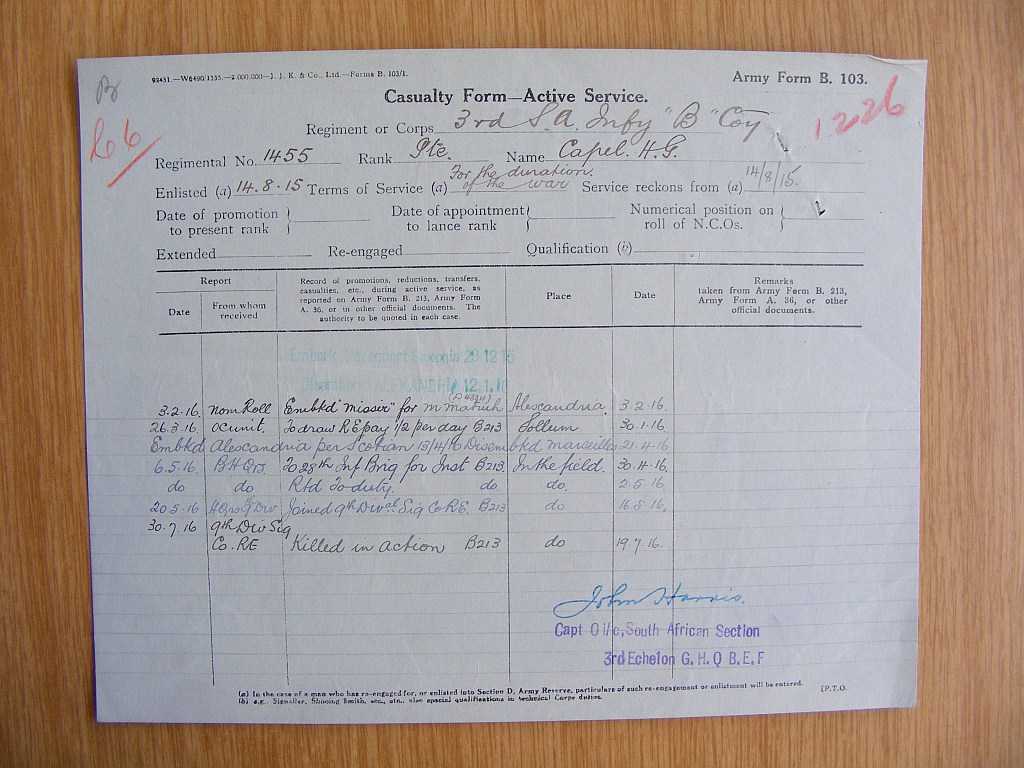 92431.—W6490/1335.—2,000,000—J. J. K. & Co., Ltd.—Forms B. 103/1.
Army Form B. 103.
Casualty Form—Active Service.
1226
66
Regiment or Corps 3rd S.A. Infy "B" Coy
Regimental No. 1455 Rank Pte. Name Capel. H.G.
Enlisted (a) 14.8.15 Terms of Service (a) For the duration of the war Service reckons from (a) 14/8/15.
Date of promotion to present rank
Date of appointment to lance rank
Numerical position on roll of N.C.Os.
Extended Re-engaged Qualification (b)
Report
Date
From whom received
Record of promotions, reductions, transfers, casualties, etc., during active service, as reported on Army Form B. 213, Army Form A. 36, or in other official documents. The authority to be quoted in each case.
Place
Date
Remarks taken from Army Form B. 213, Army Form A. 36, or other official documents.
Embark Devonport Saxonia 29 12 15
ALEXANDRIA 12.1.16
3.2.16. Nom Roll Embkd "Missir" for M Matruh Alexandria. 3.2.16.
26.3.16. OC unit. To draw RE pay 1/2 per day B213 Sollum 30.1.16.
Embkd Alexandria per Scotian 13/4/16 Disembkd Marseilles 21.4.16
6.5.16. BHQrs To 28th Inf Brig for Inst B213 In the field. 30.4.16.
do do Rtd To duty. do. do. 2.5.16.
20.5.16 HQrs 9th Div Joined 9th Dival Sig Co RE. B213 do 16.5.16.
30.7.16 9th Div Sig
Co. RE Killed in action B213 do 19.7.16.
John Harris.
Capt O i/c, South African Section
3rd Echelon G. H. Q B. E. F
(a) In the case of a man who has re-engaged for, or enlisted into Section D, Army Reserve, particulars of such re-engagement or enlistment will be entered.
(b) e.g., Signaller, Shoeing Smith, etc., etc., also special qualifications in technical Corps duties.
[P.T.O.